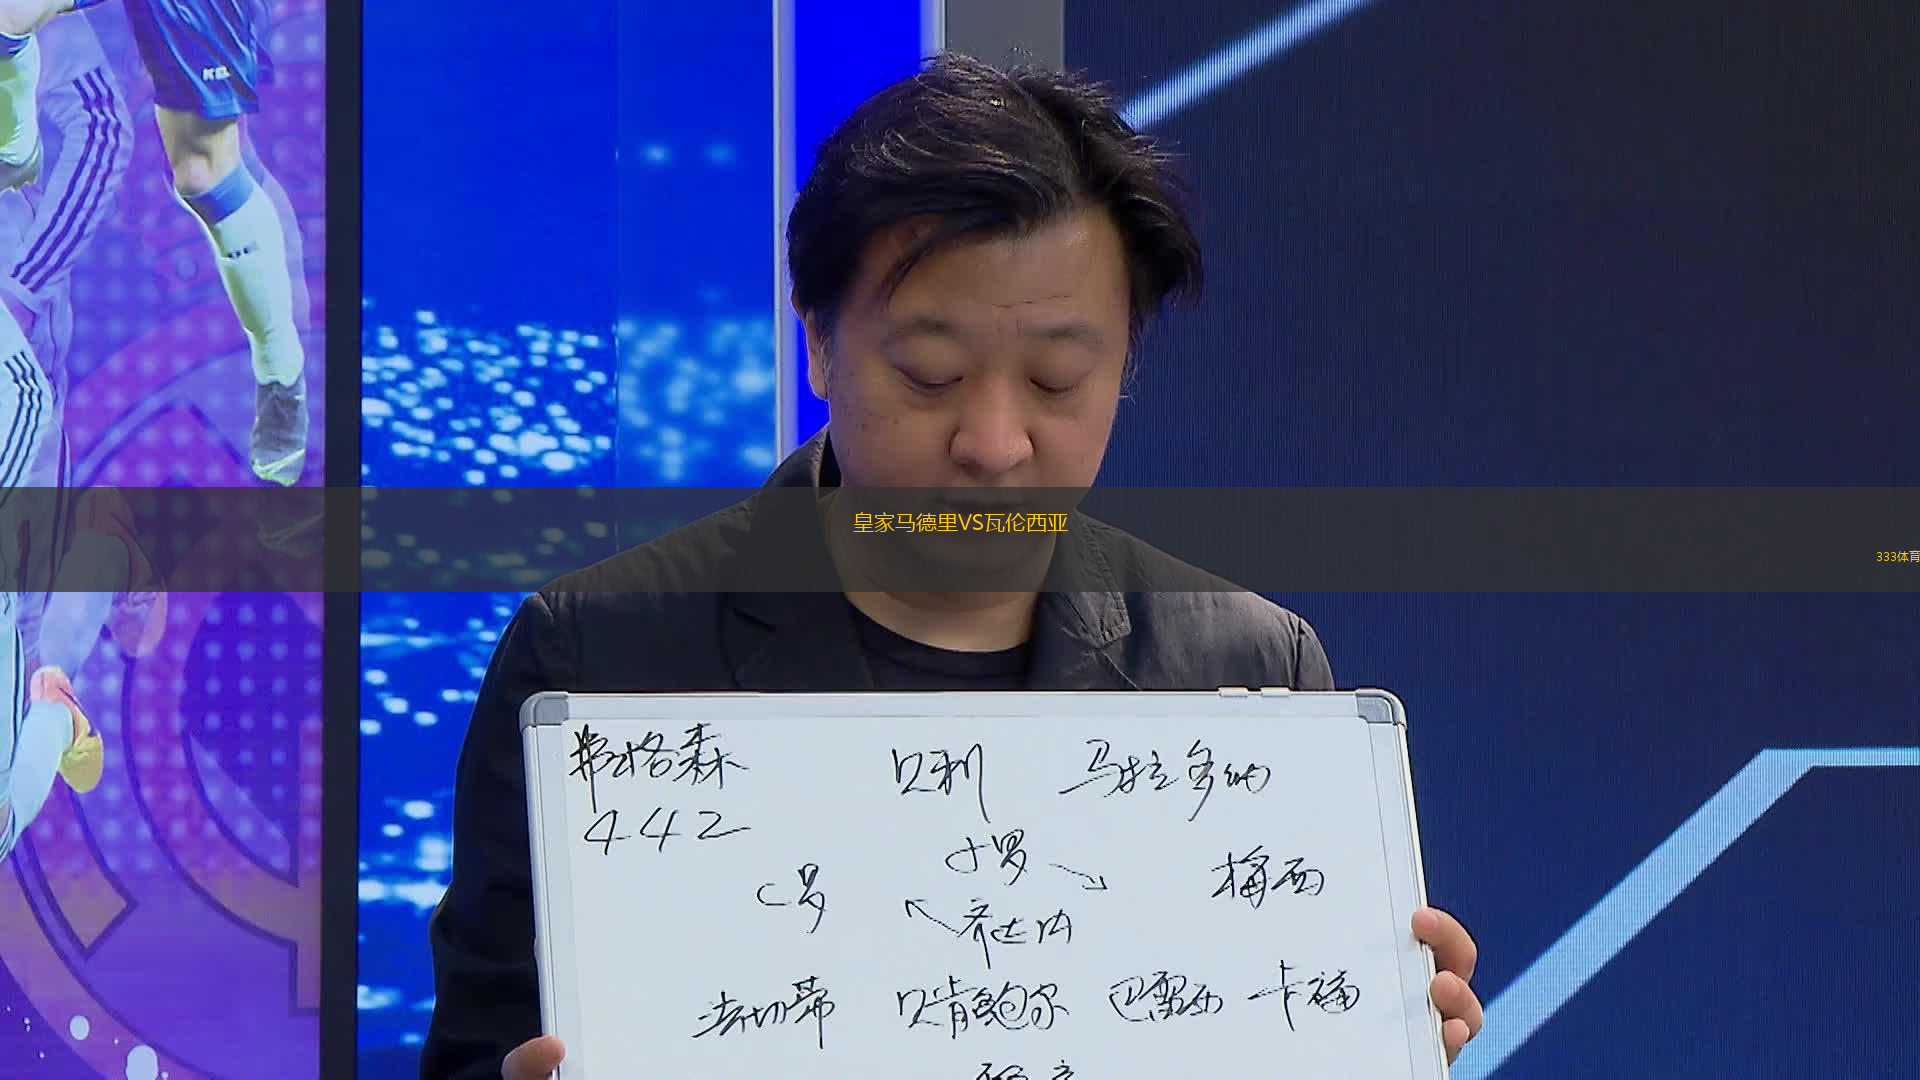 皇家马德里VS瓦伦西亚
333体育
弗格森 贝利 马拉多纳
442
小罗
C罗 梅西
齐达内
法切蒂 贝肯鲍尔 巴雷西 卡福